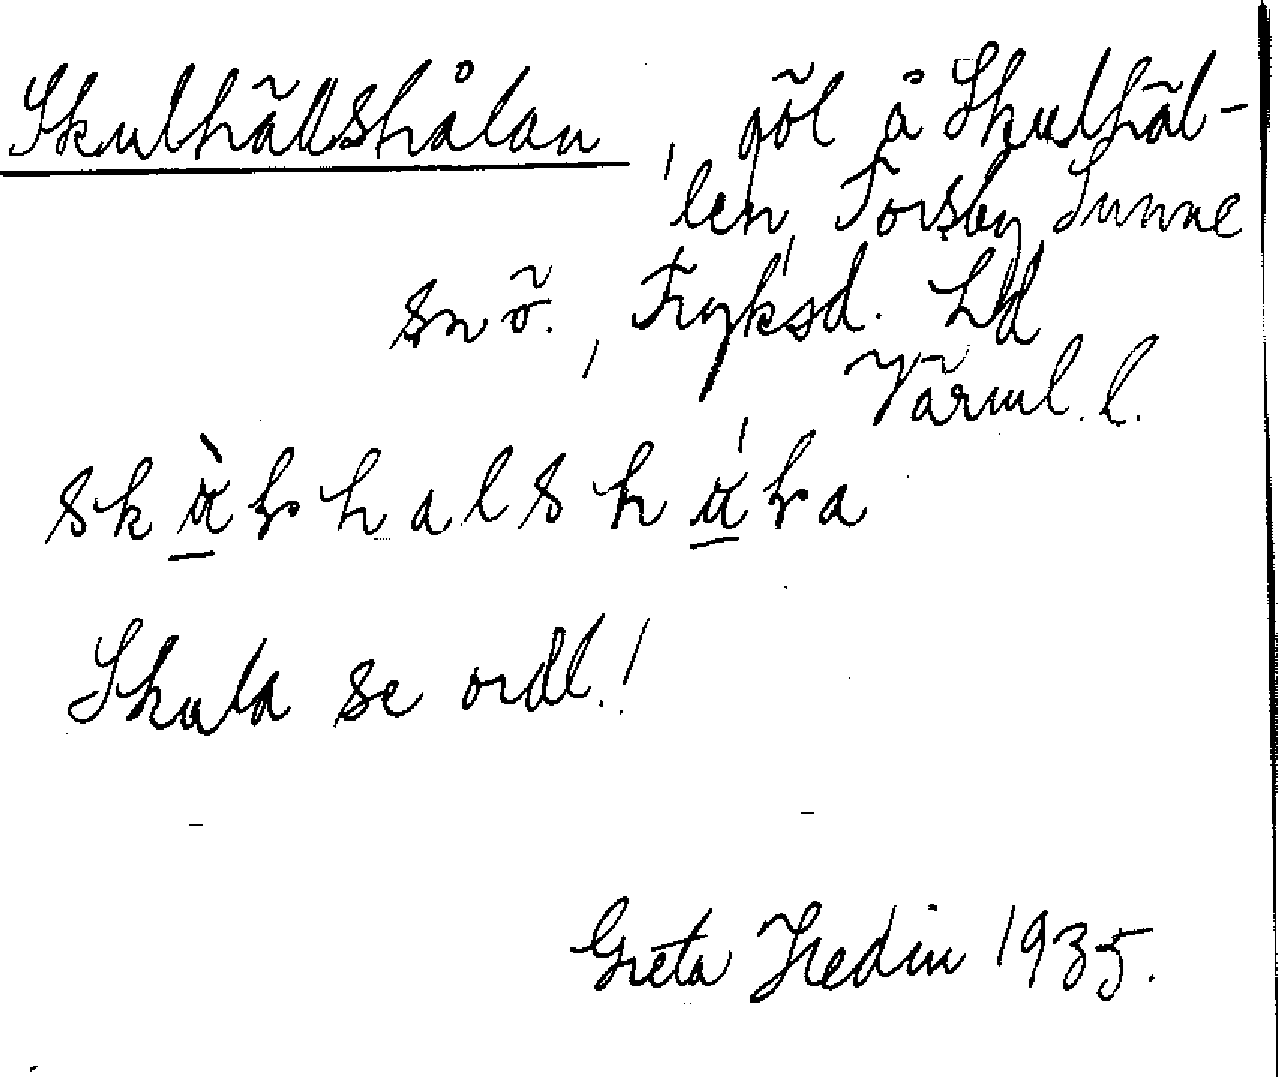 Skulhällshålan, göl å Skulhäl-
len, Torsby, Sunne
sn ö., Fryksd. hd
Värml. l.
Skula se ordl.!
Greta Hedin 1935.